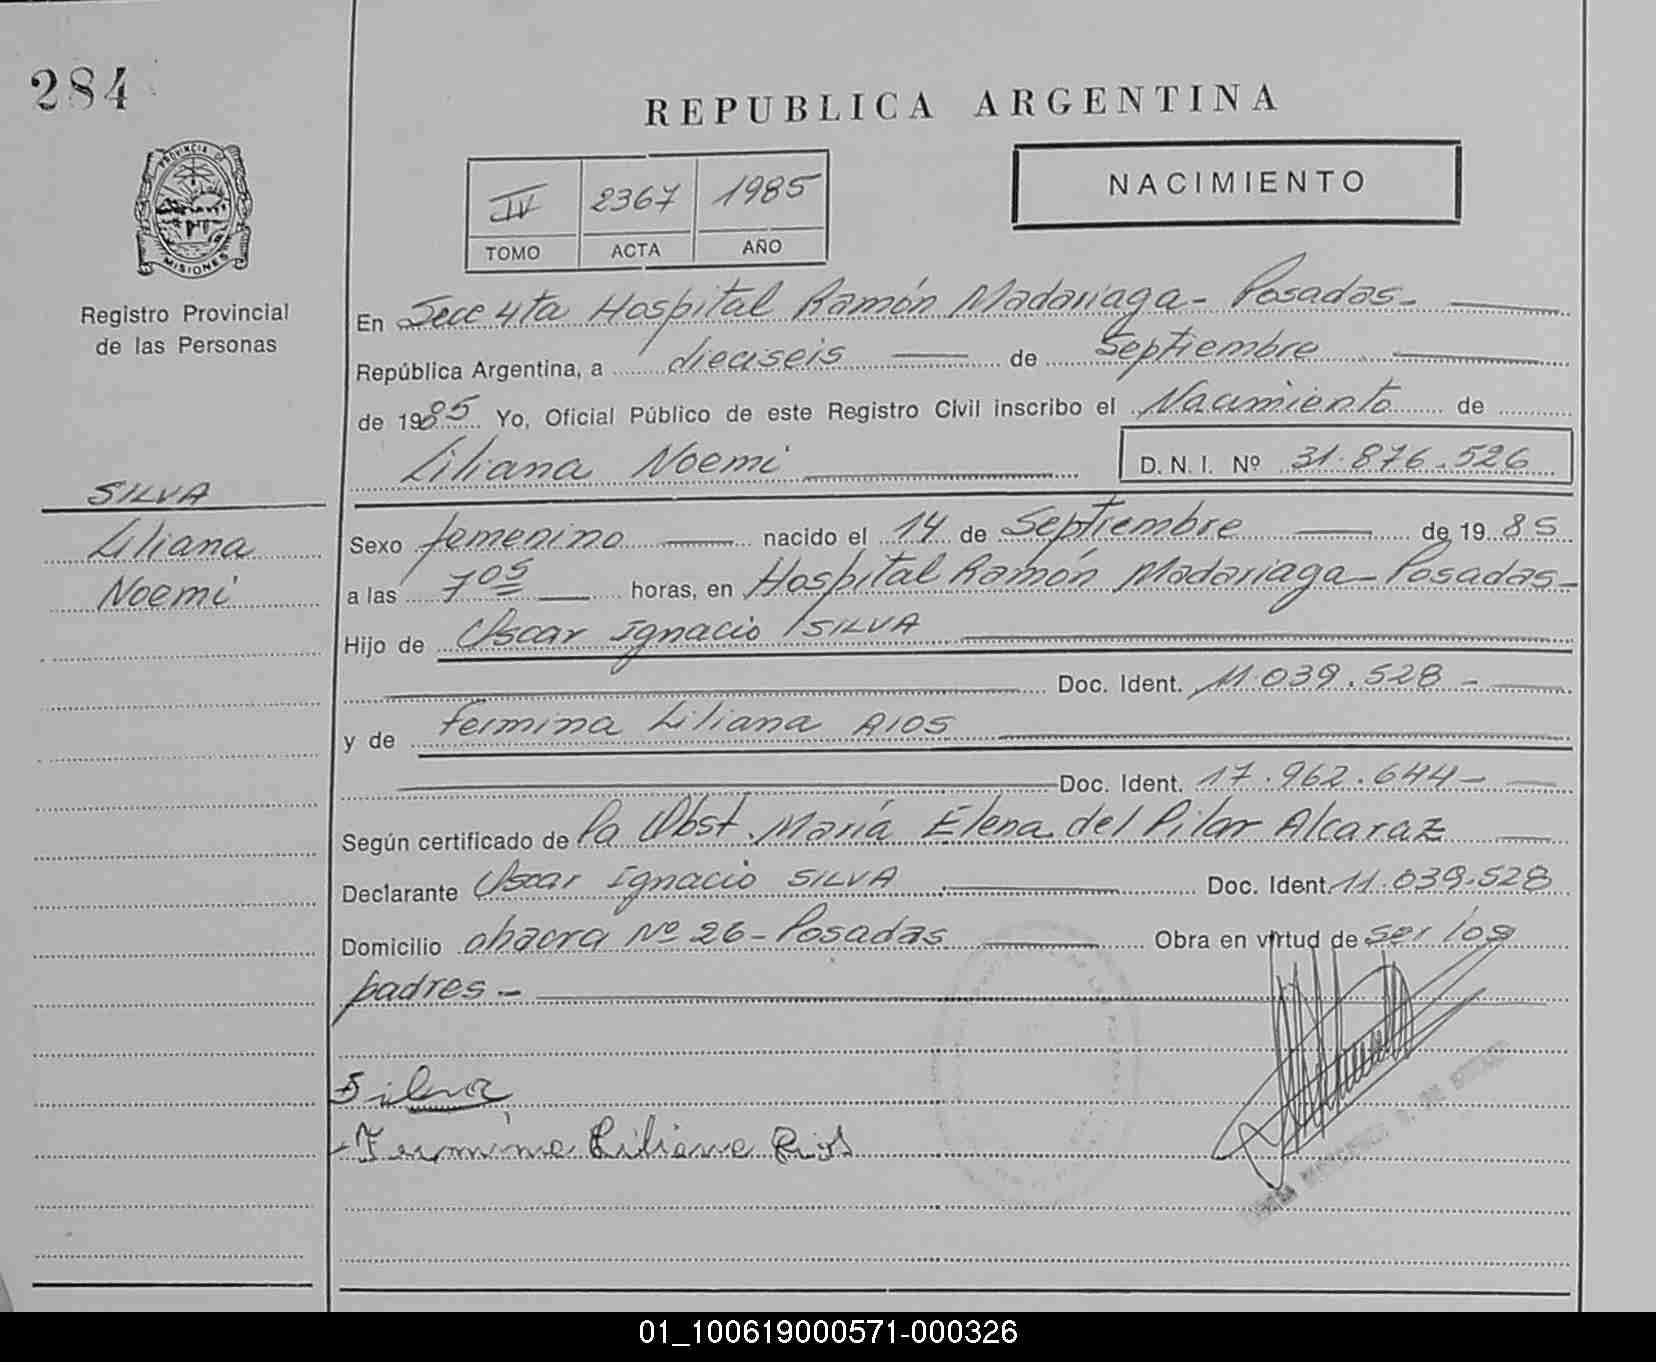 284
REPUBLICA ARGENTINA
PROVINCIA DE
MISIONES
IV 2367 1985
TOMO ACTA AÑO
NACIMIENTO
Registro Provincial
de las Personas
En Secc 4ta Hospital Ramón Madariaga - Posadas -
República Argentina, a dieciseis de Septiembre
de 1985 Yo, Oficial Público de este Registro Civil inscribo el Nacimiento de
Liliana Noemi D. N. I. Nº 31.876.526
SILVA
Liliana
Noemi
Sexo femenino nacido el 14 de Septiembre de 1985
a las 7 05 horas, en Hospital Ramón Madariaga - Posadas -
Hijo de Oscar Ignacio SILVA
Doc. Ident. 11.039.528 -
y de Fermina Liliana RIOS
Doc. Ident. 17.962.644 -
Según certificado de la Obst. María Elena del Pilar Alcaraz
Declarante Oscar Ignacio SILVA Doc. Ident. 11.039.528
Domicilio chacra Nº 26 - Posadas Obra en virtud de ser los
padres -
Silva
Fermina Liliana Rios
01_100619000571-000326